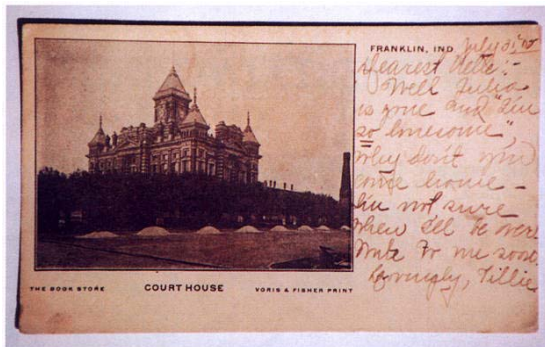 FRANKLIN, IND July 31, '05
Dearest Nelle:-
Well Julia
is gone and "I'm
so lonesome",
why don't you
come home -
I'm not sure
when I'll be over
Write to me soon
Lovingly, Tillie
THE BOOK STORE COURT HOUSE VORIS & FISHER PRINT